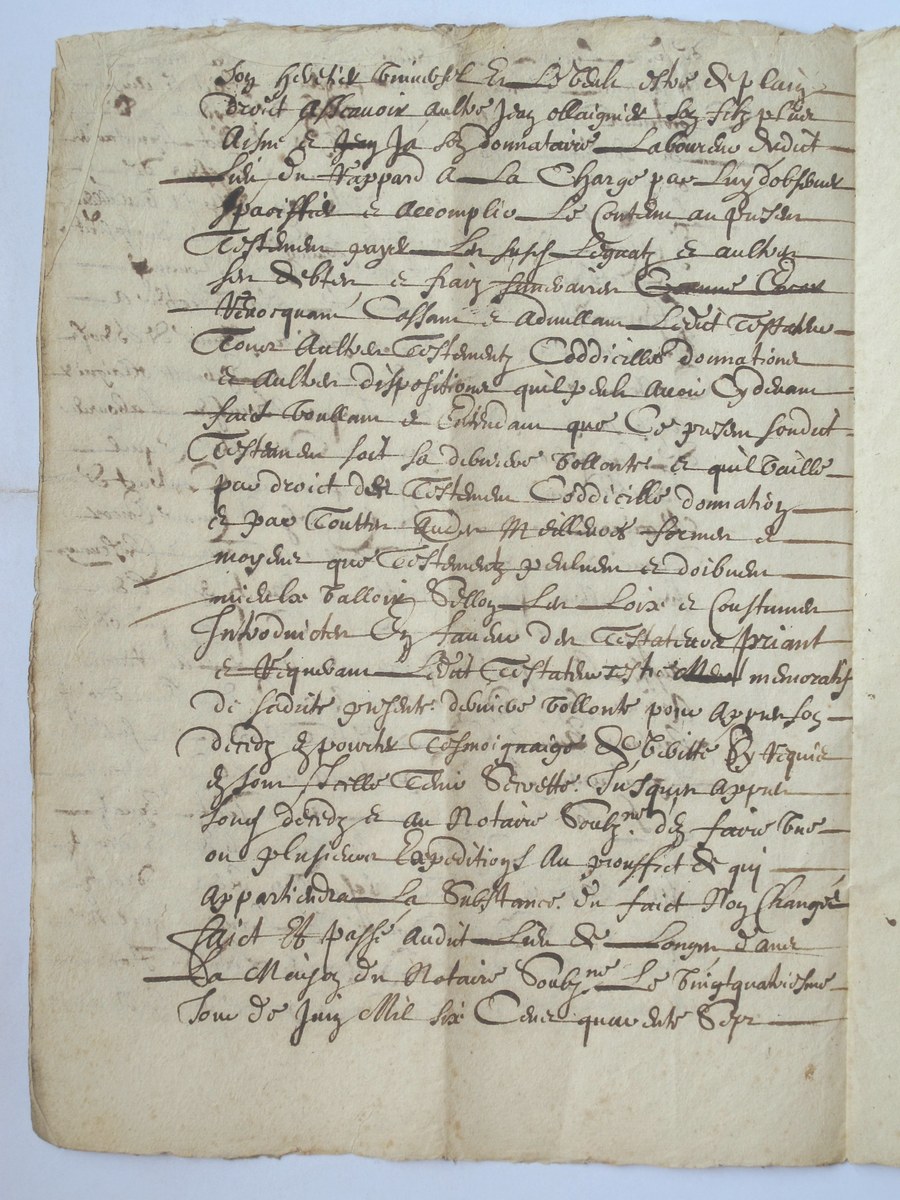 son heretier universel Et Le veult estre de plain
droict Asscavoir aultre Jean ollaignier son filz plus
Aisne et Ja son donnataire Laboureur dudict
Lieu du Rappard A La Charge par Luy d'observer
et accomplir Le Contenu au presen
Testemen payer Les susd Legatz et aultres
ses debtes et fraiz funerairres
Revocquant Cassant et Adnullant Ledict Testateur
Tous Aultres Testementz Coddicilles donnations
et Aultres dispositions quil peult Avoir Cydevant
faict Voullant et Entendant que Ce presen sondict
Testemen soit sa derniere vollonte et quil vaille
par droict de Testemen Coddicille donnation
et par Touttes Aultres Meilleures formes et
moyens que Testementz peulvent et doibvent
mieulx valloir Sellon Les Loix et Coustumes
Introduictes En faveur des Testateurs priant
et Requerant Ledict Testateur memoratif
de sadicte presente derniere vollonte pour Appres son
decedz en pourter Tesmoignaige de veritte Sy Requis
en sont Icelle Tenir Secrette Jusques Appres
sond decedz et au Notaire Soubzne d'en faire une
ou plusieurs Expeditions Au prouffict de qui
Appartiendra La Substance du faict Non Changee
Faict Et passé Audict Lieu de Longes dans
La Maison du Notaire Soubzne Le vingtquatriesme
Jour de Juin Mil six Cens quarente Sept